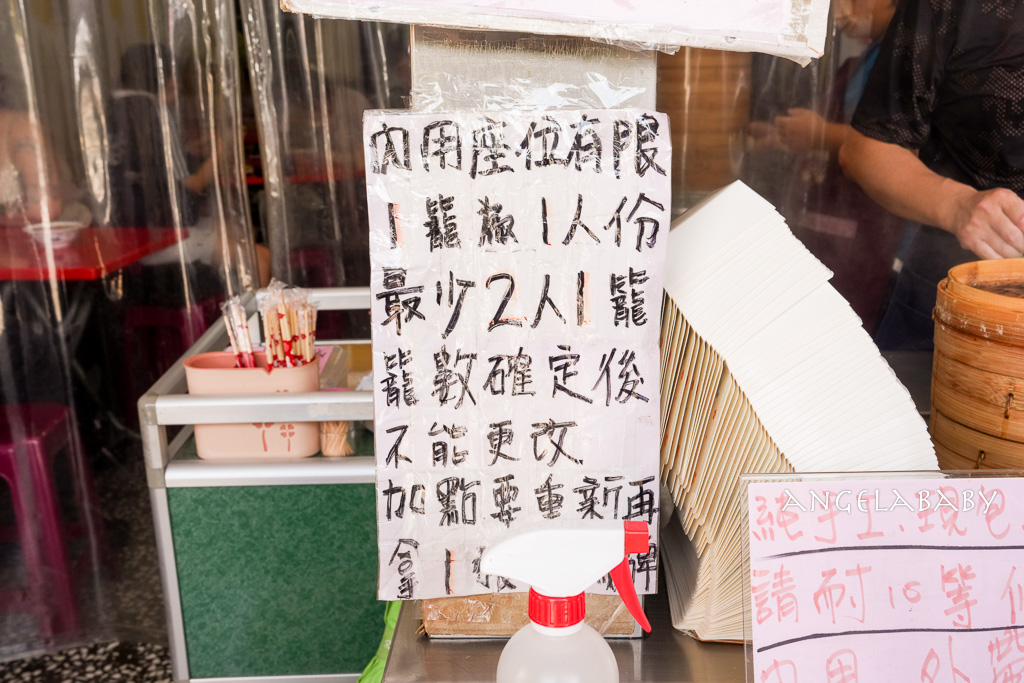 內用座位有限
1籠極1人份
最少2人1籠
籠數確定後
不能更改
加點要重新再
拿1張 牌
ANGELABABY
純手工、現包
請耐心等候
內用 外帶